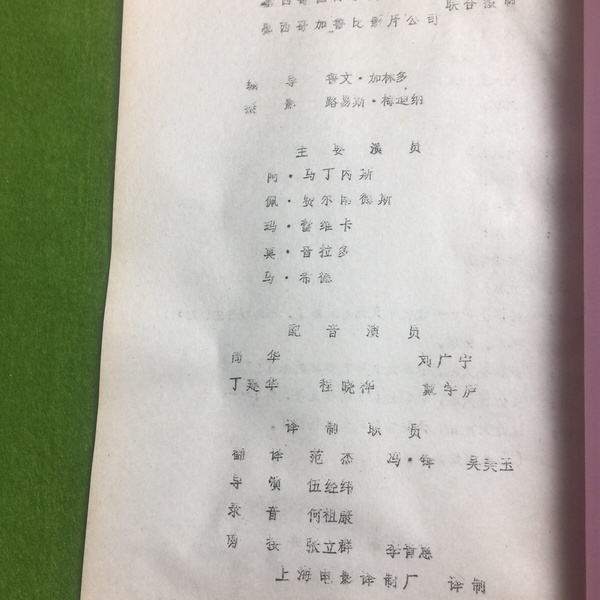 墨西哥 联合摄制
墨西哥加鲁比影片公司
编 导 鲁文·加标多
摄 影 路易斯·梅迪纳
主 要 演 员
阿·马丁内斯
佩·费尔南德斯
玛·鲁维卡
莫·普拉多
马·布德
配 音 演 员
尚 华 刘广宁
丁建华 程晓桦 戴学庐
译 制 职 员
翻 译 范 杰 冯·锋 吴美玉
导 演 伍经纬
录 音 何祖严
剪 接 张立群
上海电影译制厂 译制